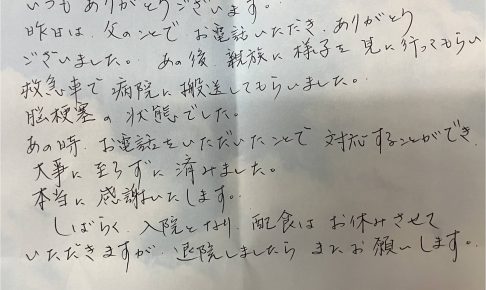 いつもありがとうございます。
昨日は、父のことで、お電話いただき、ありがとう
ございました。 あの後、親族に様子を見に行ってもらい
救急車で病院に搬送してもらいました。
脳梗塞の状態でした。
あの時、お電話をいただいたことで 対応することができ、
大事に至らずに済みました。
本当に感謝いたします。
しばらく、入院となり、配食は お休みさせて
いただきますが、退院しましたら またお願いします。